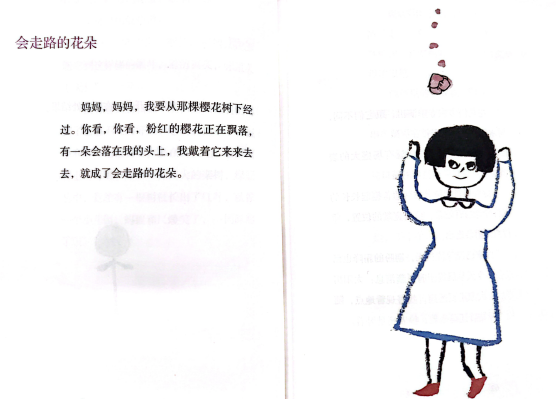 会走路的花朵
妈妈，妈妈，我要从那棵樱花树下经
过。你看，你看，粉红的樱花正在飘落，
有一朵会落在我的头上，我戴着它来来去
去，就成了会走路的花朵。